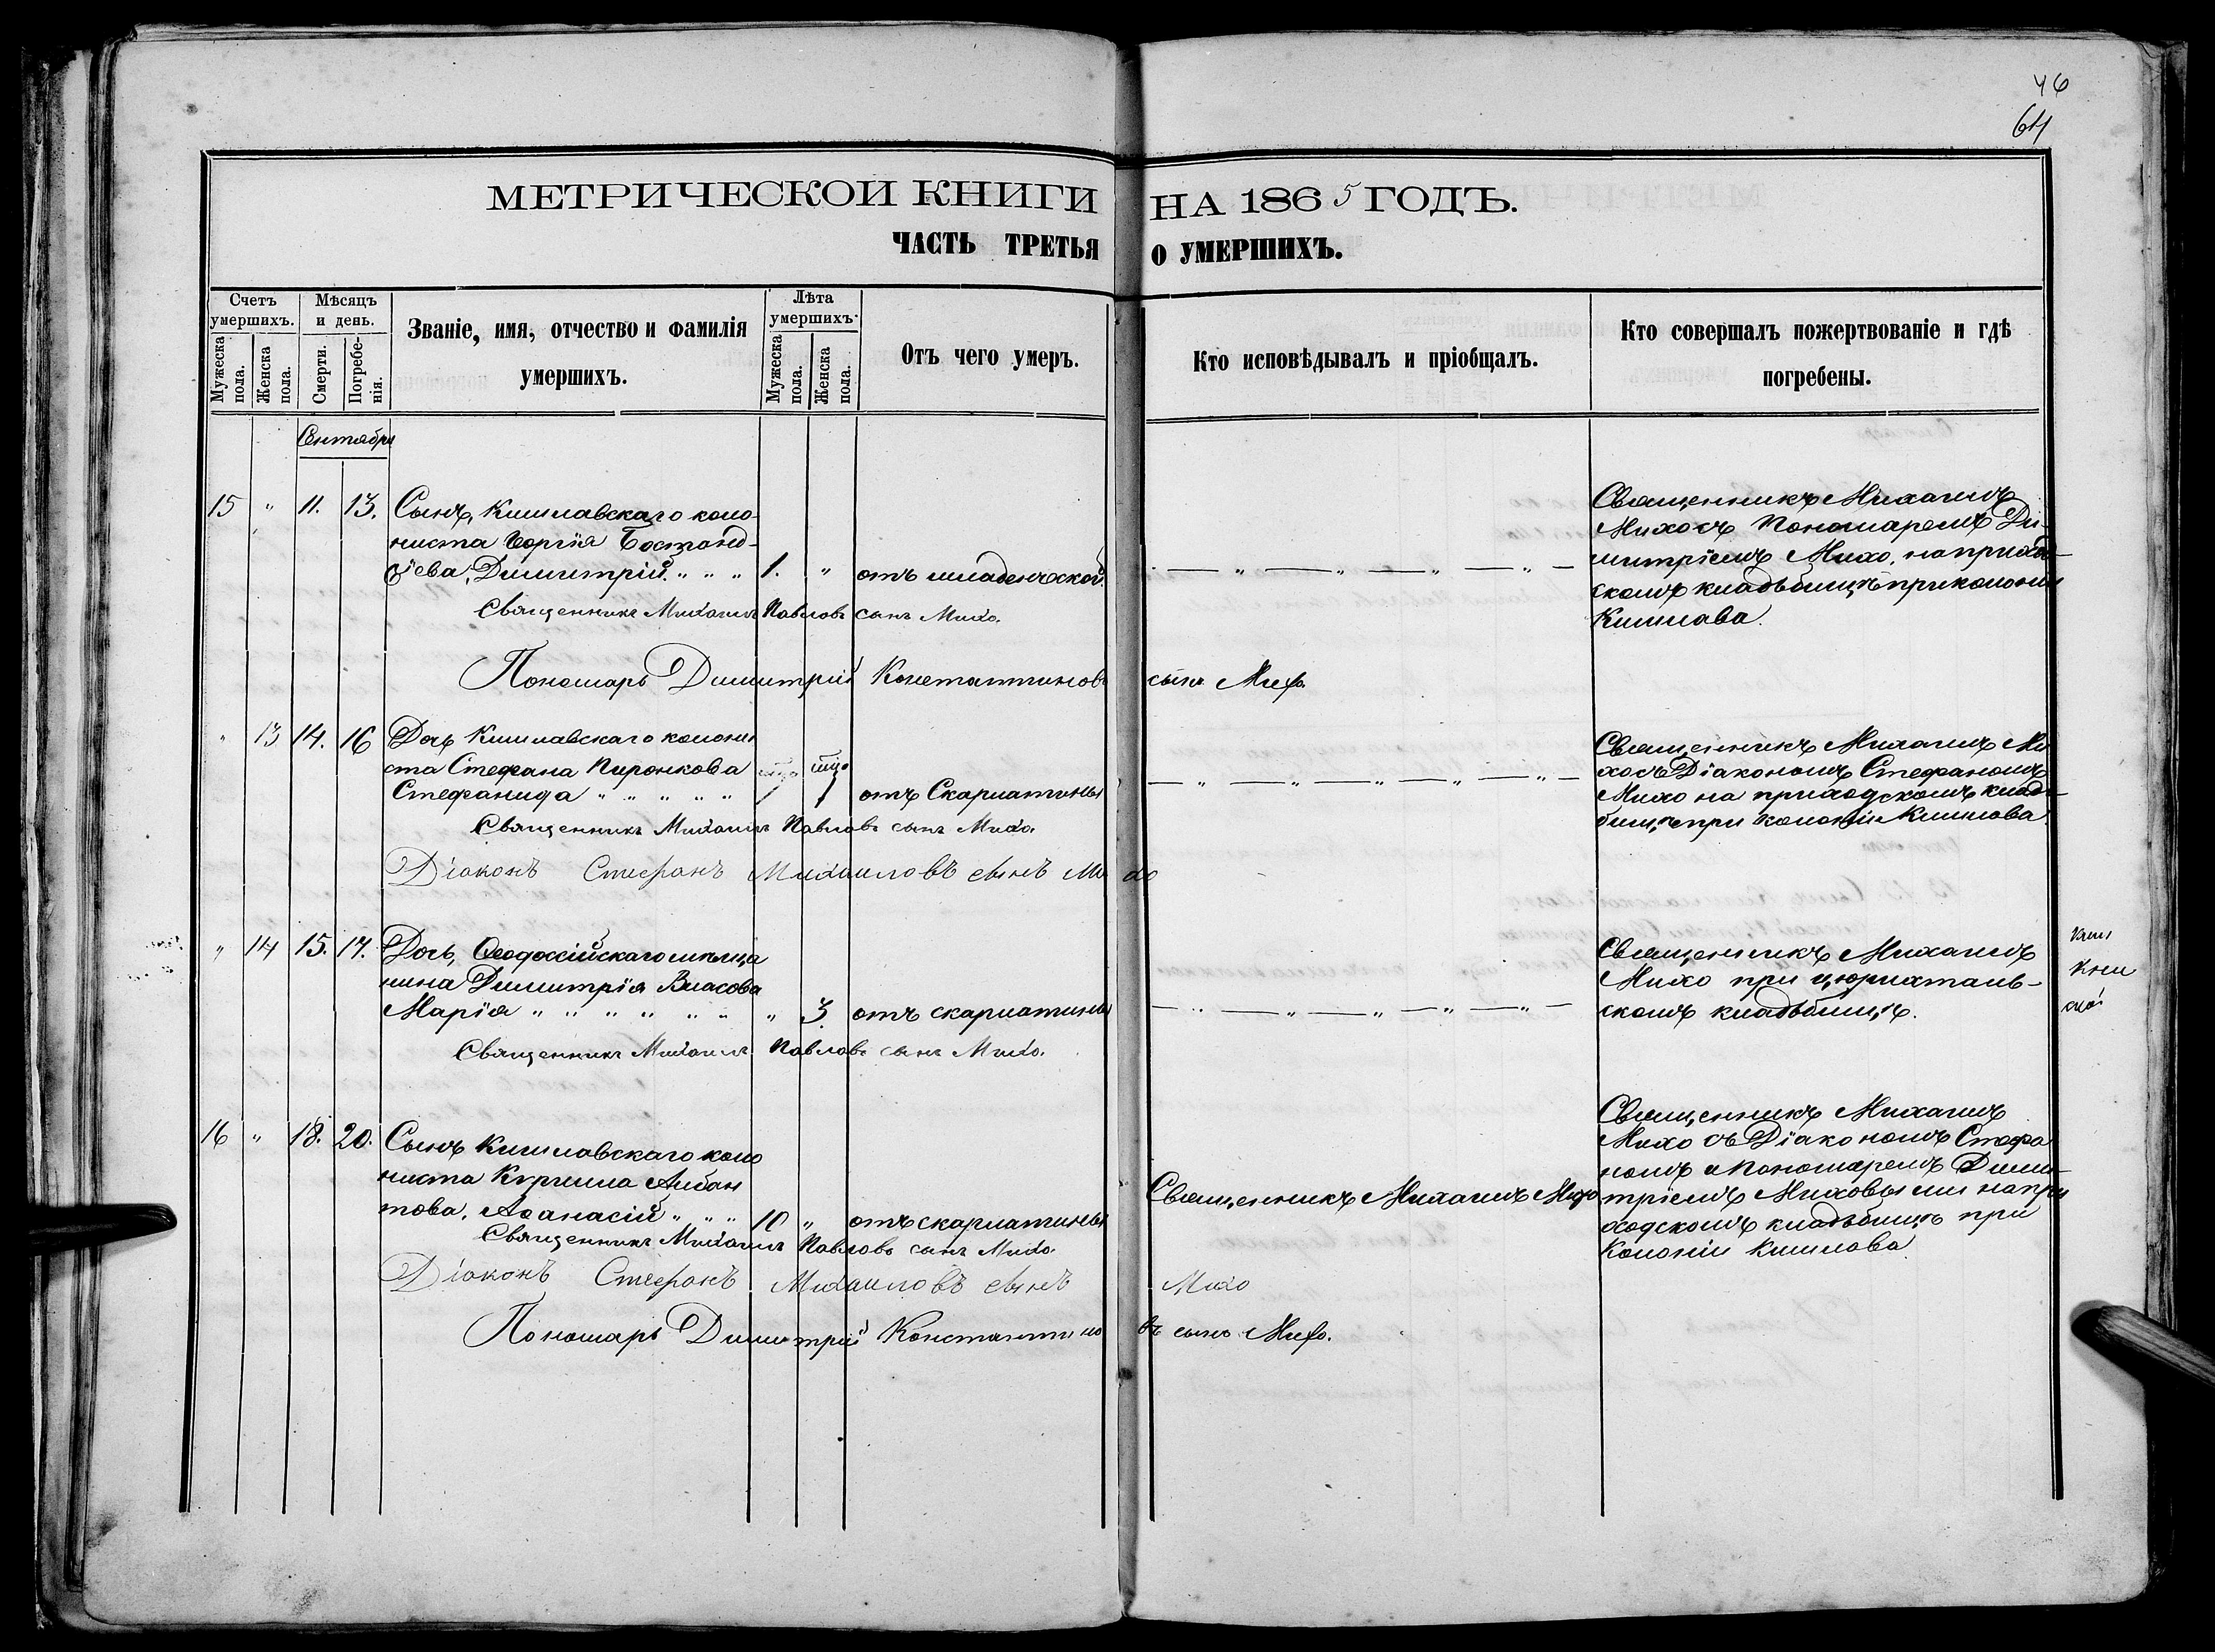 46
64
МЕТРИЧЕСКОИ КНИГИ НА 1865 ГОДЪ.
ЧАСТЬ ТРЕТЬЯ О УМЕРШИХЪ.
Счетъ умершихъ.
Мужеска пола.
Женска пола.
Мѣсяцъ и день.
Смерти.
Погребенія.
Званіе, имя, отчество и фамилія умершихъ.
Лѣта умершихъ.
Мужеска пола.
Женска пола.
Отъ чего умеръ.
Кто исповѣдывалъ и пріобщалъ.
Кто совершалъ пожертвованіе и гдѣ погребены.
Сентября
15 " 11. 13. Сынъ, Кишлавскаго коло-
ниста Георгія Бостанд-
зіева, Димитрій. " " " 1. " отъ младенческой.
Священникъ Михаилъ
Михо съ Пономаремъ Ди-
митріемъ Михо, на приход-
скомъ кладьбищѣ при колоніи
Кишлава.
Священникъ Михаилъ Павловъ сынъ Михо.
Пономарь Димитрій Константиновъ сынъ Михо.
" 13 14. 16 Дочь Кишлавскаго колони
ста Стефана Пиронкова
Стефанида " " " " " 1 отъ Скарлатины
Священникъ Михаилъ Ми
хо съ Діакономъ Стефаномъ
Михо на приходскомъ кладь-
бищѣ при колоніи Кишлава.
Священникъ Михаилъ Павловъ сынъ Михо.
Діаконъ Стефанъ Михаиловъ сынъ Михо
" 14 15. 17. Дочь, Ѳеодосійскаго мѣща
нина Димитрія Власова
Марія " " " " " " " 3. отъ скарлатины
Священникъ Михаилъ
Михо при цюрихталь-
скомъ кладьбищѣ.
Священникъ Михаилъ Павловъ сынъ Михо.
16 " 18. 20. Сынъ Кишлавскаго коло
ниста Кирилла Албан
това, Аѳанасій " " " 10 " отъ скарлатины
Священникъ Михаилъ Михо
Священникъ Михаилъ
Михо съ Діакономъ Стефа
номъ и Пономаремъ Дими-
тріемъ Миховыми на при
ходскомъ кладьбищѣ при
Колоніи Кишлава.
Священникъ Михаилъ Павловъ сынъ Михо.
Діаконъ Стефанъ Михаиловъ сынъ Михо
Пономарь Димитрій Константиновъ сынъ Михо.